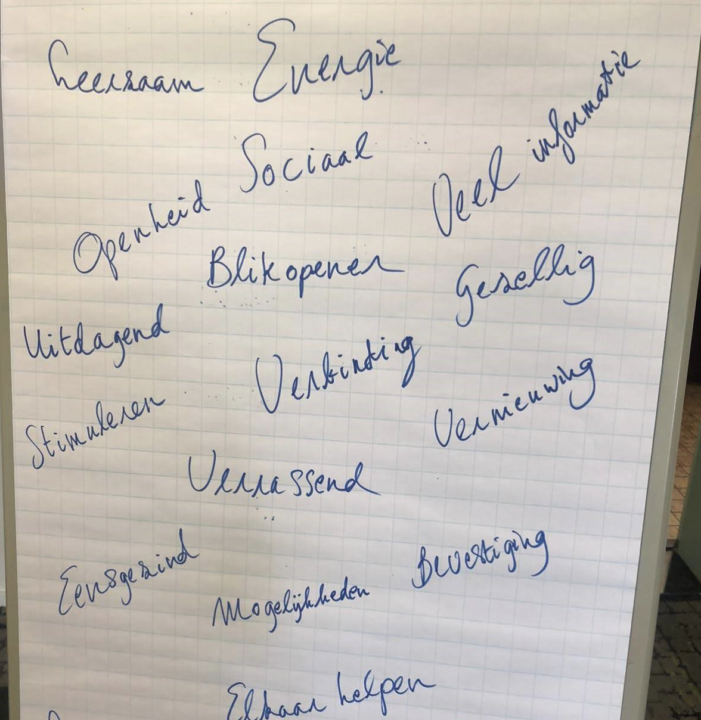 Leerzaam Energie
Sociaal
Veel informatie
Openheid
Blikopener
Gezellig
Uitdagend
Verbinding
Stimuleren
Vernieuwing
Verrassend
Eensgezind
Mogelijkheden
Bevestiging
Elkaar helpen